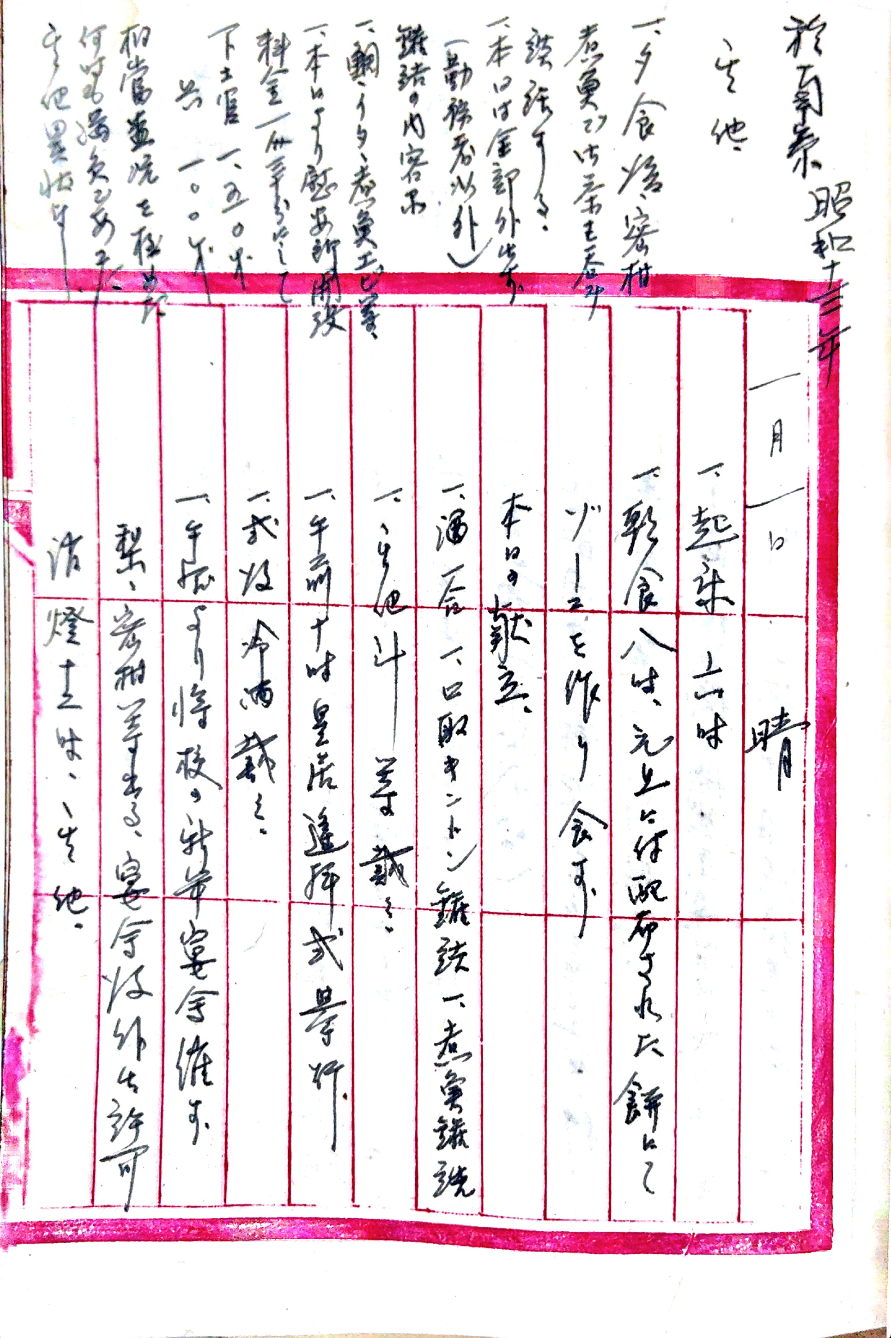 於南京 昭和十三年
一月一日 晴
一、起床 六時
一、朝食八時、元旦に付配布された餅にて
ゾーニを作り食す
本日の献立、
一、酒一合 一、口取キントン鑵詰 一、煮魚鑵詰
一、其他 等戴く、
一、午前十時皇居遙拝式挙行
一、式後冷酒戴く、
一、午后より将校の新年宴会催す、
梨、密柑等出る、宴会後外出許可
消燈 時、其他、
其他、
一、夕食后、密柑
煮魚で御茶を呑み
談話する、
一、本日は全部外出す
(勤務者以外)
鑵詰の内容品
一、鯛、イタ、煮魚エビ等
一、本日より慰安所開設
料金一人三十分にして
下士官 一、五〇才
兵 一、〇〇才
相当盛況を極めた
何時も満員であった
其他異状なし